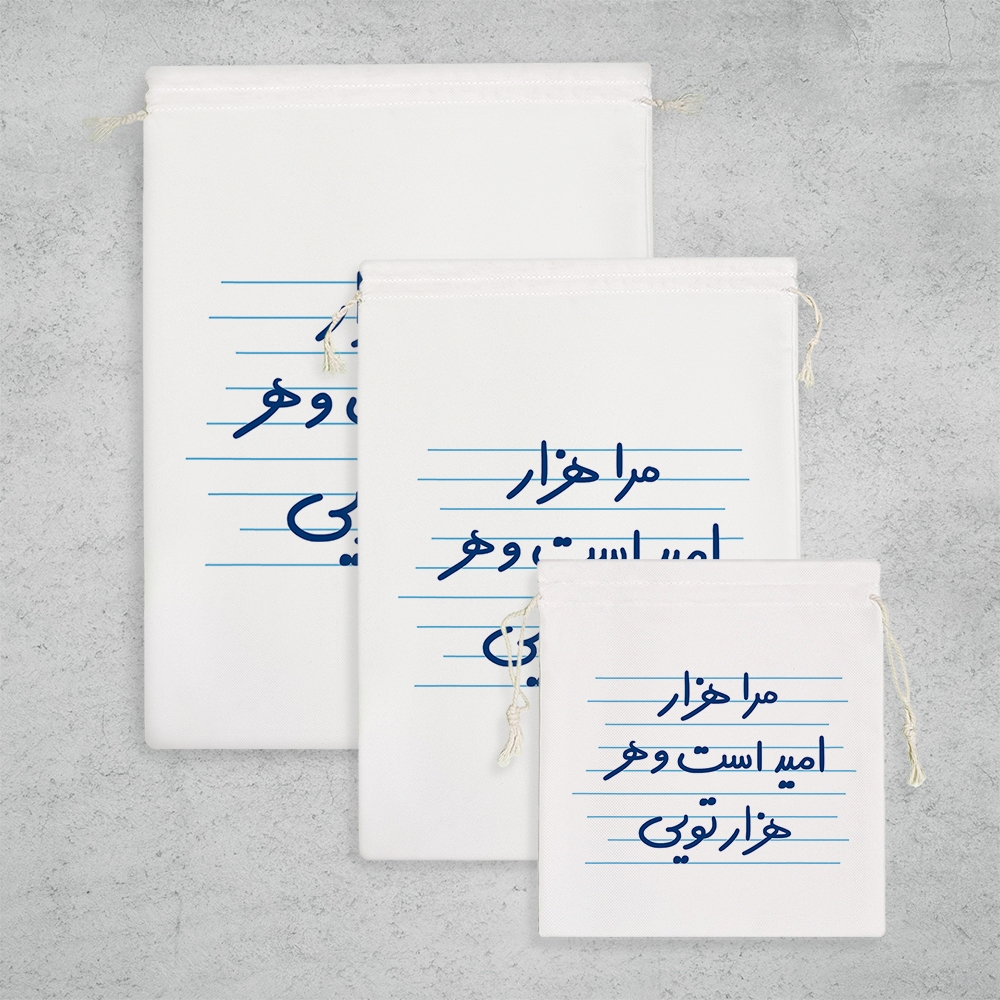 و هر
مرا هزار
امید است و هر
مرا هزار
امید است و هر
هزار تویی